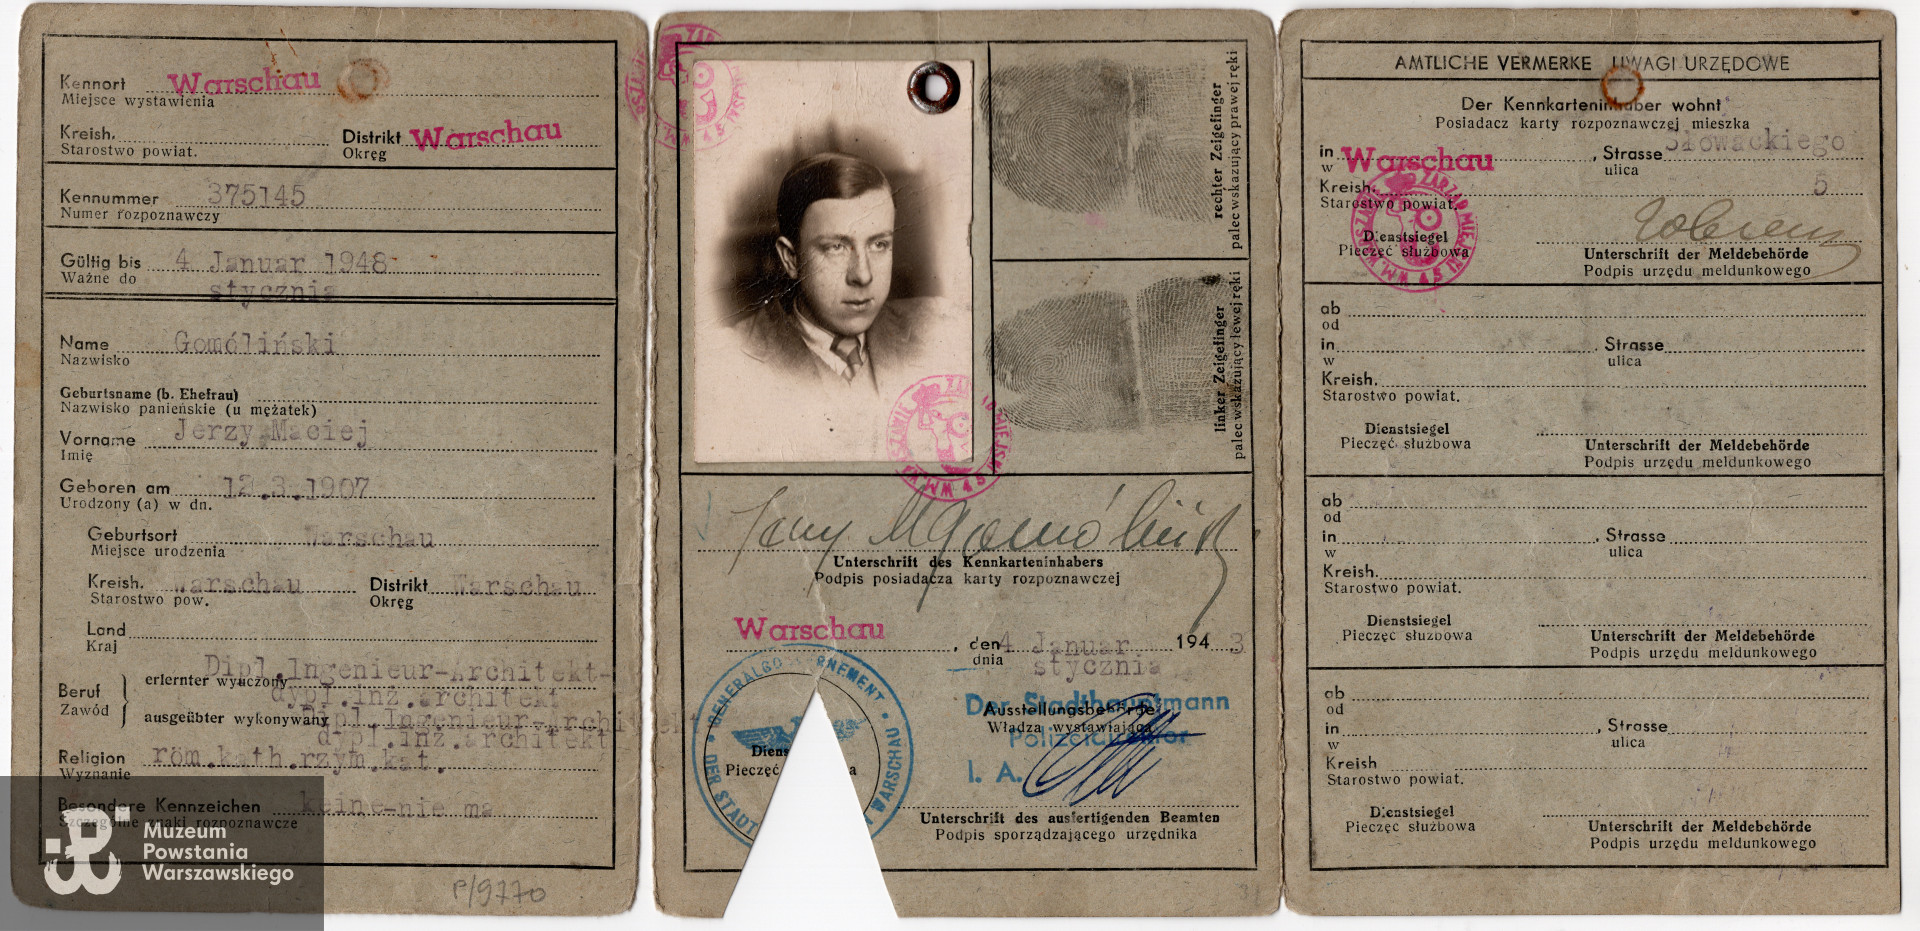 Kennort Warschau
Miejsce wystawienia
Kreish. Distrikt Warschau
Starostwo powiat. Okręg
Kennummer 375145
Numer rozpoznawczy
Gültig bis 4 Januar 1948
Ważne do stycznia
Name Gomóliński
Nazwisko
Geburtsname (b. Ehefrau)
Nazwisko panieńskie (u mężatek)
Vorname Jerzy Maciej
Imię
Geboren am 12.3.1907
Urodzony (a) w dn.
Geburtsort Warschau
Miejsce urodzenia
Kreish. Warschau Distrikt Warschau
Starostwo pow. Okręg
Land
Kraj
Beruf erlernter wyuczony Dipl.Ingenieur-Architekt-
Zawód dypl.inż.architekt
ausgeübter wykonywany Dipl.Ingenieur-Architekt
dypl.inż.architekt
Religion röm.kath.rzym.kat.
Wyznanie
Besondere Kennzeichen keine-nie ma
Szczególne znaki rozpoznawcze
Muzeum
Powstania
Warszawskiego
P/9770
rechter Zeigefinger
palec wskazujący prawej ręki
linker Zeigefinger
palec wskazujący lewej ręki
Jerzy M Gomóliński
Unterschrift des Kennkarteninhabers
Podpis posiadacza karty rozpoznawczej
Warschau, den 4 Januar 1943
dnia stycznia
Der Stadthauptmann
Ausstellungsbehörde
Władza wystawiająca
I. A.
GENERALGOUVERNEMENT • DER STADT WARSCHAU •
Diens
Pieczęć a
Unterschrift des ausfertigenden Beamten
Podpis sporządzającego urzędnika
AMTLICHE VERMERKE UWAGI URZĘDOWE
Der Kennkarteninhaber wohnt
Posiadacz karty rozpoznawczej mieszka
in Warschau, Strasse Słowackiego
w ulica
Kreish. 5
Starostwo powiat.
Dienstsiegel
Pieczęć służbowa
Unterschrift der Meldebehörde
Podpis urzędu meldunkowego
ab
od
in , Strasse
w ulica
Kreish.
Starostwo powiat.
Dienstsiegel
Pieczęć służbowa
Unterschrift der Meldebehörde
Podpis urzędu meldunkowego
ab
od
in , Strasse
w ulica
Kreish.
Starostwo powiat.
Dienstsiegel
Pieczęć służbowa
Unterschrift der Meldebehörde
Podpis urzędu meldunkowego
ab
od
in , Strasse
w ulica
Kreish
Starostwo powiat.
Dienstsiegel
Pieczęć służbowa
Unterschrift der Meldebehörde
Podpis urzędu meldunkowego